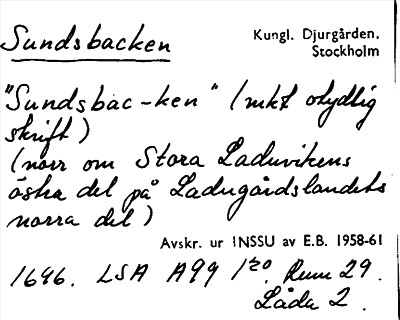 Sundsbacken
Kungl. Djurgården,
Stockholm
"Sundsbac-ken" (mkt otydlig
skrift)
(norr om Stora Laduvikens
östra del på Ladugårdslandets
norra del)
Avskr. ur INSSU av E.B. 1958-61
1696. LSA A99 1:20. Rum 29.
Låda 2.